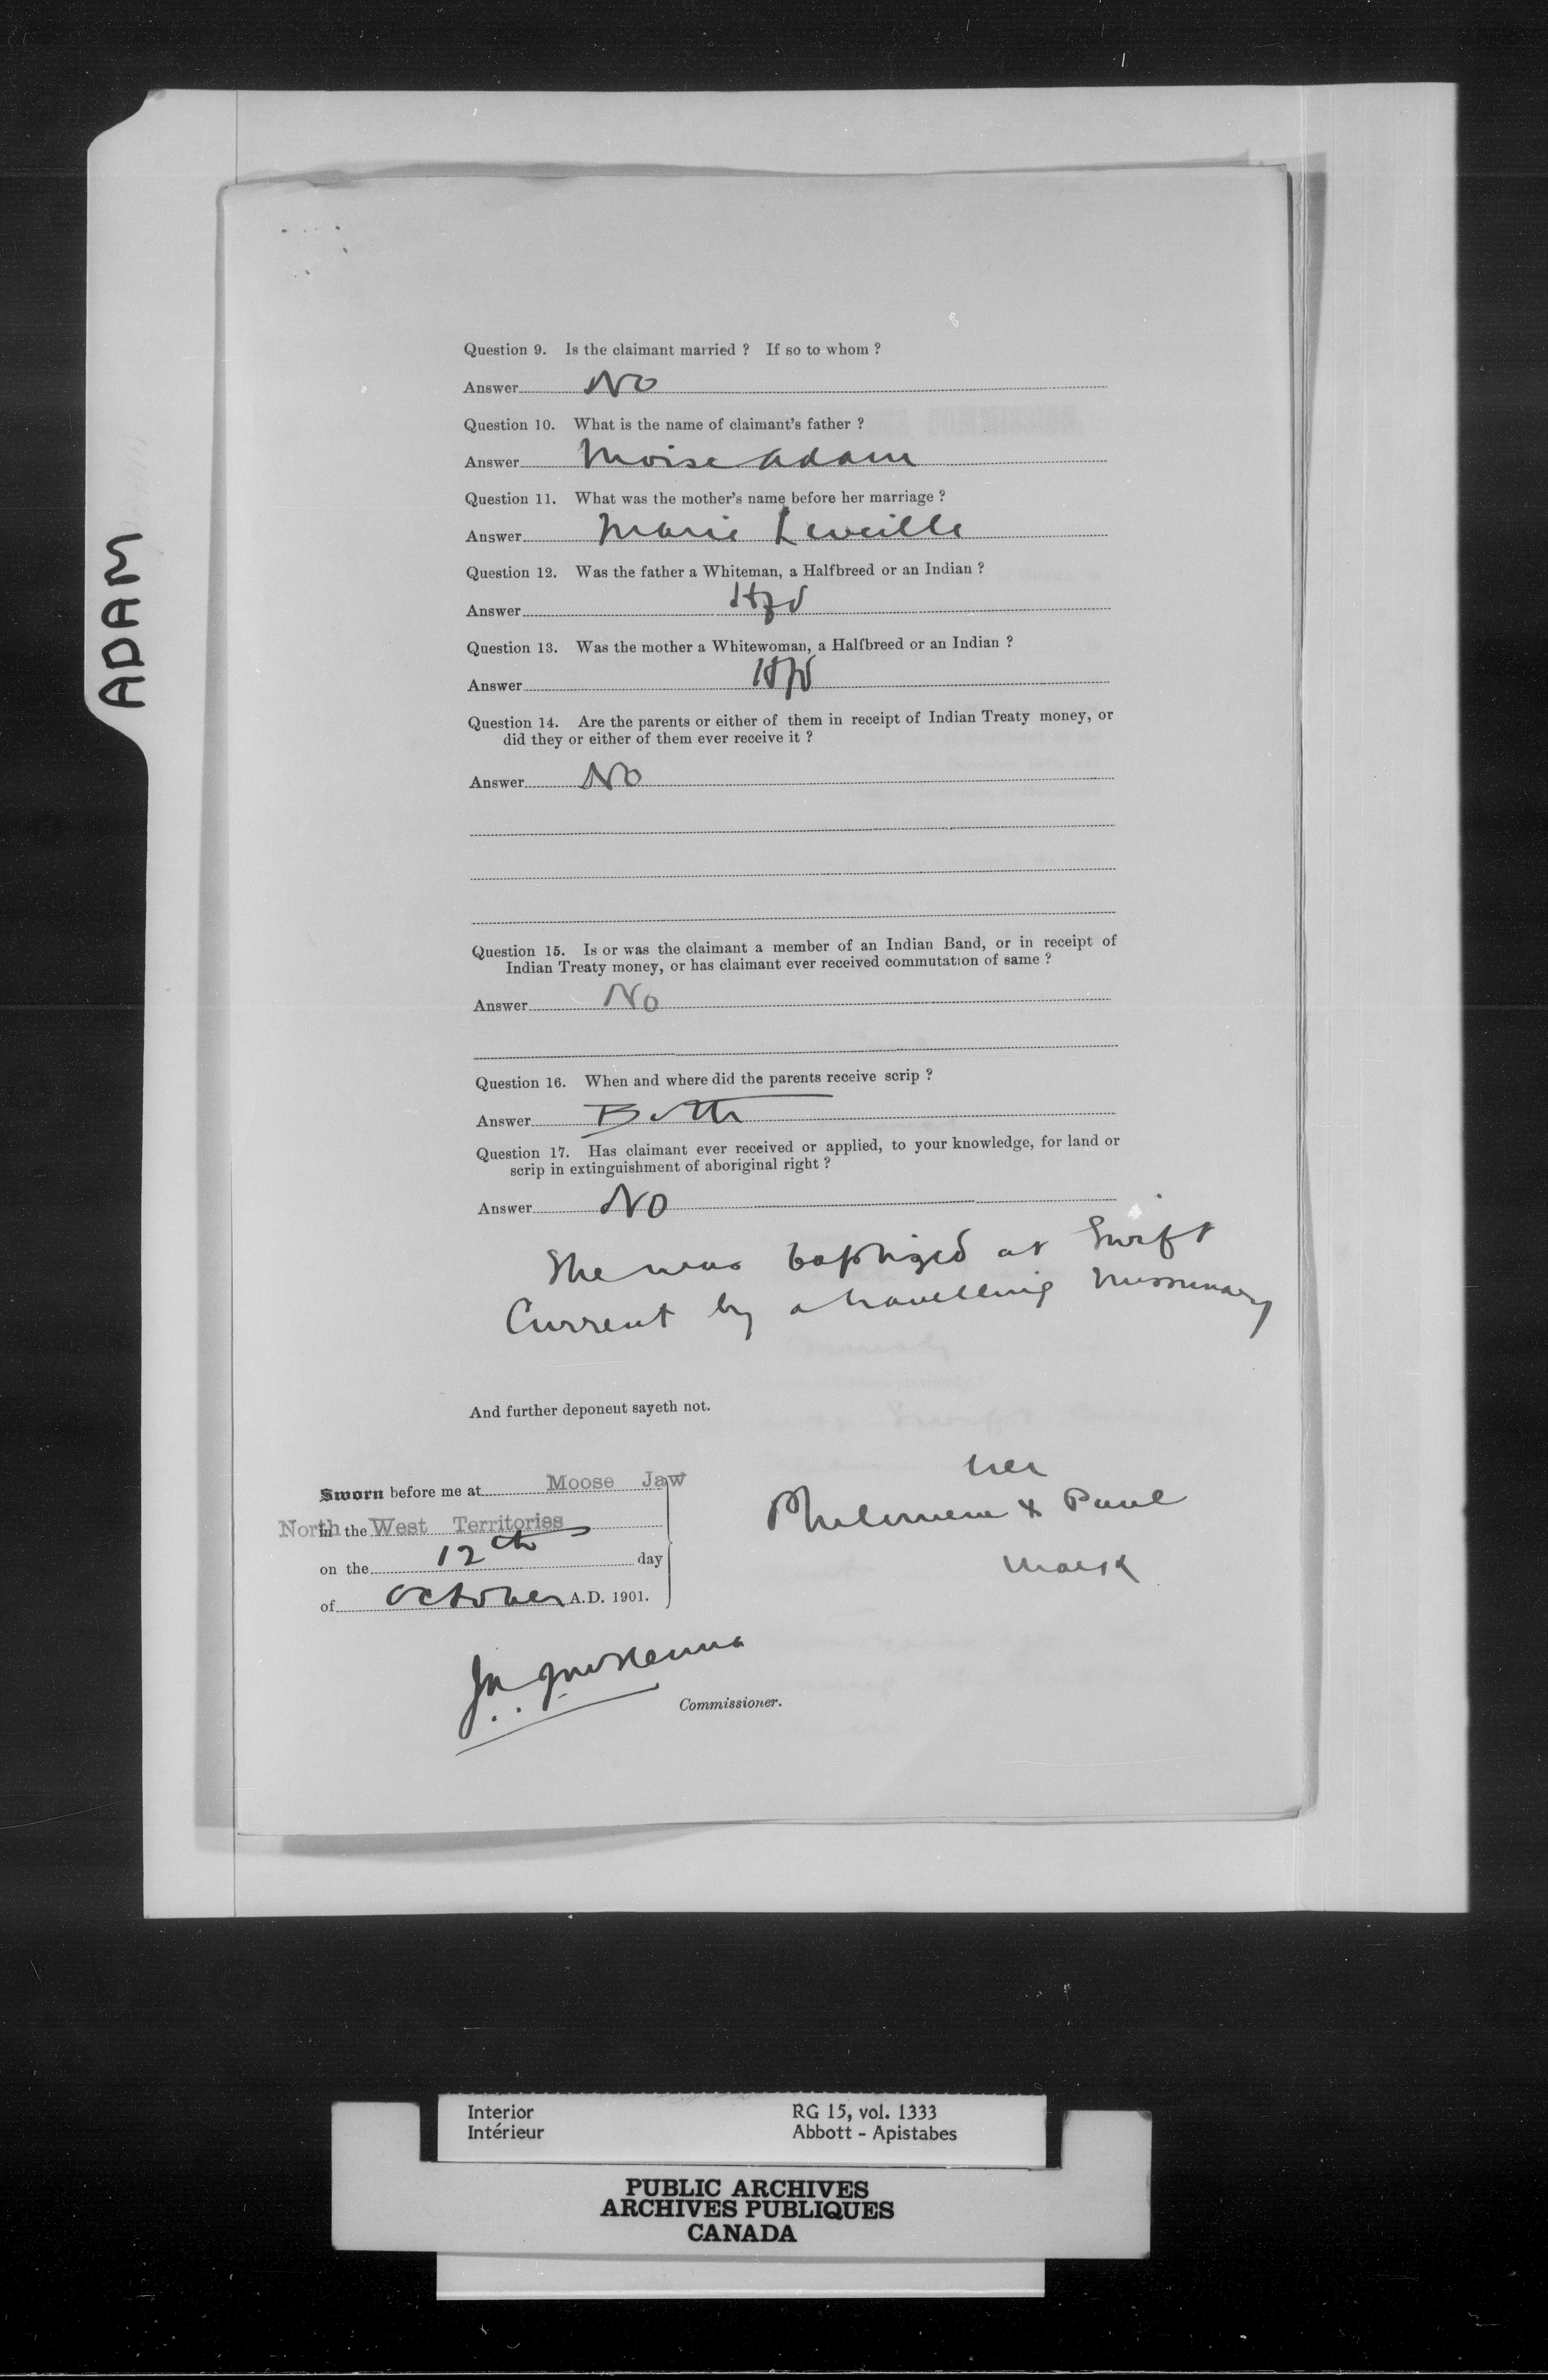 ADAM
Question 9. Is the claimant married ? If so to whom ?
Answer No
Question 10. What is the name of claimant's father ?
Answer Moise Adam
Question 11. What was the mother's name before her marriage ?
Answer Marie Leveille
Question 12. Was the father a Whiteman, a Halfbreed or an Indian ?
Answer Hfd
Question 13. Was the mother a Whitewoman, a Halfbreed or an Indian ?
Answer Hfd
Question 14. Are the parents or either of them in receipt of Indian Treaty money, or
did they or either of them ever receive it ?
Answer No
Question 15. Is or was the claimant a member of an Indian Band, or in receipt of
Indian Treaty money, or has claimant ever received commutation of same ?
Answer No
Question 16. When and where did the parents receive scrip ?
Answer Both
Question 17. Has claimant ever received or applied, to your knowledge, for land or
scrip in extinguishment of aboriginal right ?
Answer No
She was baptized at Swift
Current by a travelling Missionary
And further deponent sayeth not.
Sworn before me at Moose Jaw
North in the West Territories
on the 12th day
of October A.D. 1901.
her
Philomene x Paul
mark
Commissioner.
Interior RG 15, vol. 1333
Intérieur Abbott - Apistabes
PUBLIC ARCHIVES
ARCHIVES PUBLIQUES
CANADA